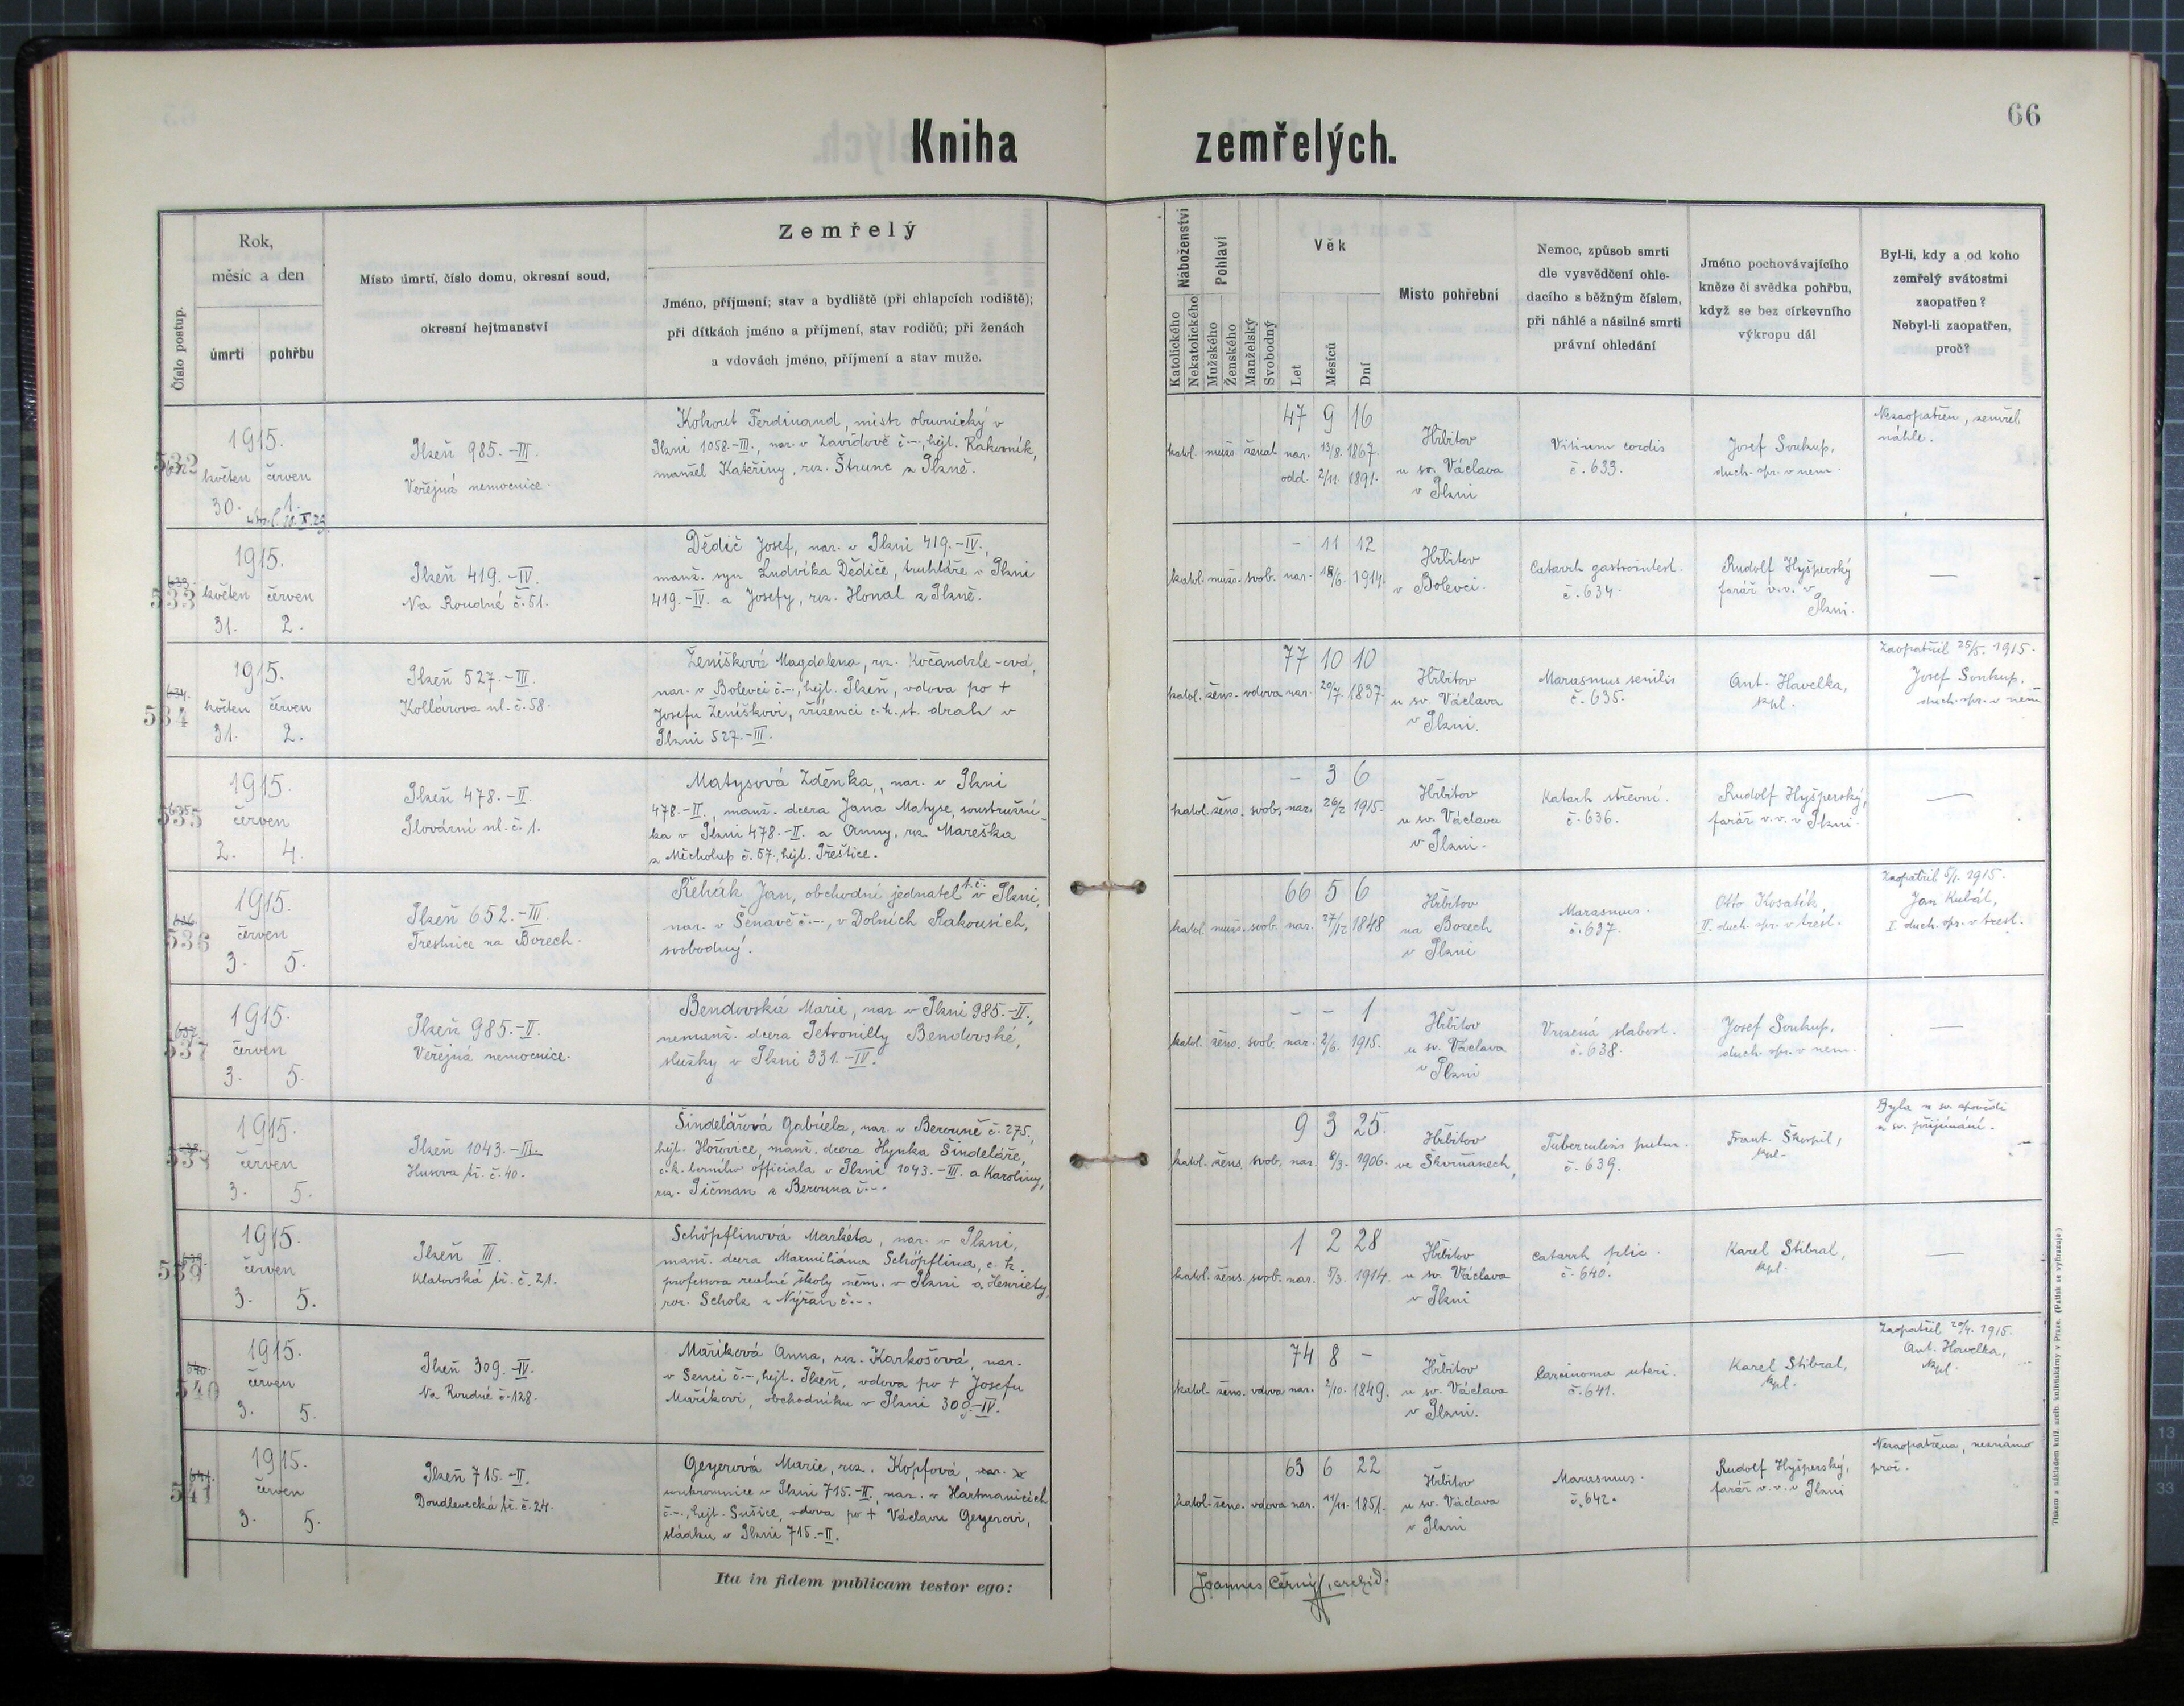 66
Kniha zemřelých.
Číslo postup.
Rok,
měsíc a den
úmrtí
pohřbu
Místo úmrtí, číslo domu, okresní soud,
okresní hejtmanství
Zemřelý
Jméno, příjmení; stav a bydliště (při chlapcích rodiště);
při dítkách jméno a příjmení, stav rodičů; při ženách
a vdovách jméno, příjmení a stav muže.
Náboženství
Katolického
Nekatolického
Pohlaví
Mužského
Ženského
Manželský
Svobodný
Věk
Let
Měsíců
Dní
Místo pohřební
Nemoc, způsob smrti
dle vysvědčení ohle-
dacího s běžným číslem,
při náhlé a násilné smrti
právní ohledání
Jméno pochovávajícího
kněze či svědka pohřbu,
když se bez církevního
výkropu dál
Byl-li, kdy a od koho
zemřelý svátostmi
zaopatřen?
Nebyl-li zaopatřen,
proč?
532
1915.
květen červen
30. 1.
Plzeň 985.-III.
Veřejná nemocnice.
Kohout Ferdinand, mistr obuvnický v
Plzni 1058.-III., nar. v Zavidově č.-, hejt. Rakovník,
manžel Kateřiny, roz. Štrunc z Plzně.
47 9 16
katol. mužs. ženat nar. 13/8. 1867.
odd. 2/11. 1891.
Hřbitov
u sv. Václava
v Plzni
Vitium cordis
č. 633.
Josef Soukup,
duch. spr. v nem.
Nezaopatřen, zemřel
náhle.
533
1915.
květen červen
31. 2.
Plzeň 419.-IV.
Na Roudné č. 51.
Dědič Josef, nar. v Plzni 419.-IV.,
manž. syn Ludvíka Dědiče, truhláře v Plzni
419.-IV. a Josefy, roz. Honal z Plzně.
- 11 12
katol. mužs. svob. nar. 18/6. 1914.
Hřbitov
v Bolevci.
Catarrh gastrointest.
č. 634.
Rudolf Hyšperský
farář v.v. v
Plzni.
—
534
1915.
květen červen
31. 2.
Plzeň 527.-III.
Kollárova ul. č. 58.
Ženíšková Magdalena, roz. Kočandrle-ová,
nar. v Bolevci č.-, hejt. Plzeň, vdova po +
Josefu Ženíškovi, zřízenci c. k. st. drah v
Plzni 527.-III.
77 10 10
katol. žens. vdova nar. 20/7. 1837.
Hřbitov
u sv. Václava
v Plzni.
Marasmus senilis
č. 635.
Ant. Havelka,
kpl.
Zaopatřil 25/5. 1915.
Josef Soukup,
duch. spr. v nem.
535
1915.
červen
2. 4.
Plzeň 478.-II.
Plovární ul. č. 1.
Matysová Zděnka, nar. v Plzni
478.-II., manž. dcera Jana Matyse, soustružní-
ka v Plzni 478.-II. a Anny, roz. Mareška
z Měcholup č. 57., hejt. Přeštice.
- 3 6
katol. žens. svob. nar. 26/2 1915.
Hřbitov
u sv. Václava
v Plzni.
Katarh střevní.
č. 636.
Rudolf Hyšperský,
farář v.v. v Plzni.
—
536
1915.
červen
3. 5.
Plzeň 652.-III.
Trestnice na Borech.
Řehák Jan, obchodní jednatel t. č. v Plzni,
nar. v Šenavě č.-, v Dolních Rakousích,
svobodný.
66 5 6
katol. mužs. svob. nar. 27/12 1848
Hřbitov
na Borech
v Plzni
Marasmus.
č. 637.
Otto Kosatík,
II. duch. spr. v trest.
Zaopatřil 5/1. 1915.
Jan Kubát,
I. duch. spr. v trest.
537
1915.
červen
3. 5.
Plzeň 985.-II.
Veřejná nemocnice.
Bendovská Marie, nar. v Plzni 985.-II.,
nemanž. dcera Petronilly Bendovské,
služky v Plzni 331.-IV.
- - 1
katol. žens. svob. nar. 2/6. 1915.
Hřbitov
u sv. Václava
v Plzni
Vrozená slabost.
č. 638.
Josef Soukup,
duch. spr. v nem.
—
538
1915.
červen
3. 5.
Plzeň 1043.-III.
Husova tř. č. 40.
Šindelářová Gabriela, nar. v Berouně č. 275.,
hejt. Hořovice, manž. dcera Hynka Šindeláře,
c. k. berního officiala v Plzni 1043.-III. a Karoliny,
roz. Pičman z Berouna č.-.
9 3 25.
katol. žens. svob. nar. 8/3. 1906.
Hřbitov
ve Škvrňanech,
Tuberculosis pulm.
č. 639.
Frant. Škorpil,
kpl.
Byla u sv. zpovědi
a sv. přijímání.
539
1915.
červen
3. 5.
Plzeň III.
Klatovská tř. č. 21.
Schöpflinová Markéta, nar. v Plzni,
manž. dcera Maxmiliána Schöpflina, c. k.
profesora reálné školy něm. v Plzni a Henriety,
roz. Scholz z Nýřan č.-.
1 2 28
katol. žens. svob. nar. 5/3. 1914.
Hřbitov
u sv. Václava
v Plzni
Catarrh plic.
č. 640.
Karel Stibral,
kpl.
—
540
1915.
červen
3. 5.
Plzeň 309.-IV.
Na Roudné č. 128.
Maříková Anna, roz. Karkošová, nar.
v Senci č.-, hejt. Plzeň, vdova po + Josefu
Maříkovi, obchodníku v Plzni 309.-IV.
74 8 -
katol. žens. vdova nar. 2/10. 1849.
Hřbitov
u sv. Václava
v Plzni.
Carcinoma uteri.
č. 641.
Karel Stibral,
kpl.
Zaopatřil 20/4. 1915.
Ant. Havelka,
kpl.
541
1915.
červen
3. 5.
Plzeň 715.-II.
Doudlevecká tř. č. 24.
Geyerová Marie, roz. Kopfová, nar. v
soukromnice v Plzni 715.-II., nar. v Hartmanicích
č.-, hejt. Sušice, vdova po + Václavu Geyerovi,
sládku v Plzni 715.-II.
63 6 22
katol. žens. vdova nar. 11/11. 1851.
Hřbitov
u sv. Václava
v Plzni
Marasmus.
č. 642.
Rudolf Hyšperský,
farář v.v. v Plzni
Nezaopatřena, neznámo
proč.
Ita in fidem publicam testor ego:
Joannes Černý, archid.